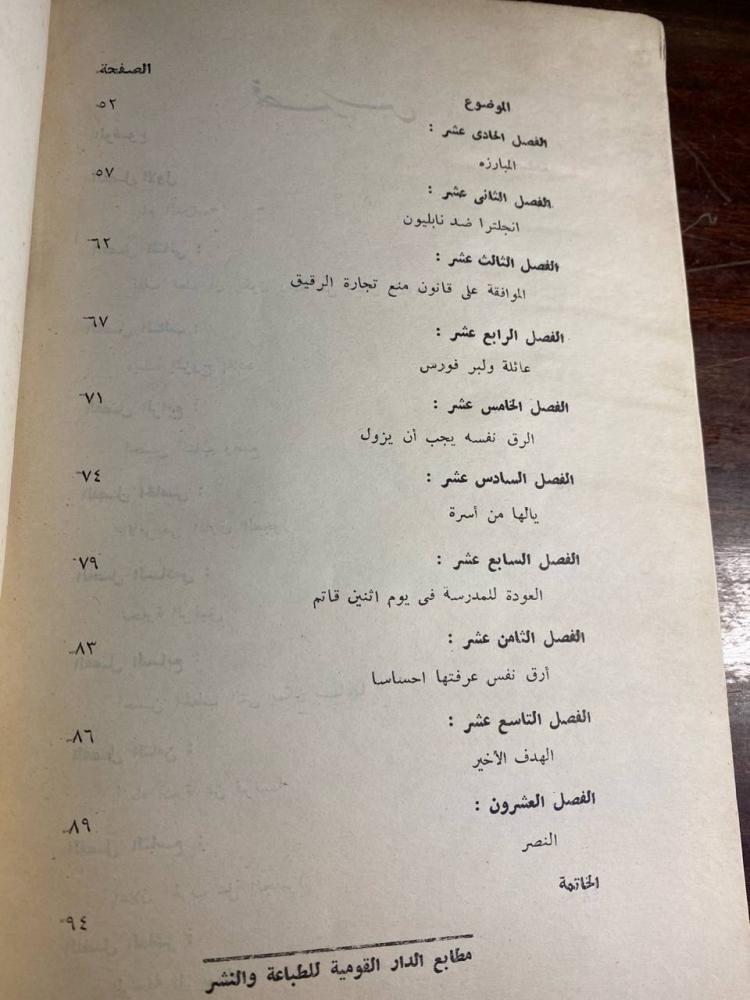 الموضوع الصفحة
الفصل الحادى عشر : ٥٢
المبارزه
الفصل الثانى عشر : ٥٧
انجلترا ضد نابليون
الفصل الثالث عشر : ٦٢
الموافقة على قانون منع تجارة الرقيق
الفصل الرابع عشر : ٦٧
عائلة ولبر فورس
الفصل الخامس عشر : ٧١
الرق نفسه يجب أن يزول
الفصل السادس عشر : ٧٤
يالها من أسرة
الفصل السابع عشر : ٧٩
العودة للمدرسة فى يوم اثنين قاتم
الفصل الثامن عشر : ٨٣
أرق نفس عرفتها احساسا
الفصل التاسع عشر : ٨٦
الهدف الأخير
الفصل العشرون : ٨٩
النصر
الخاتمة ٩٤
مطابع الدار القومية للطباعة والنشر